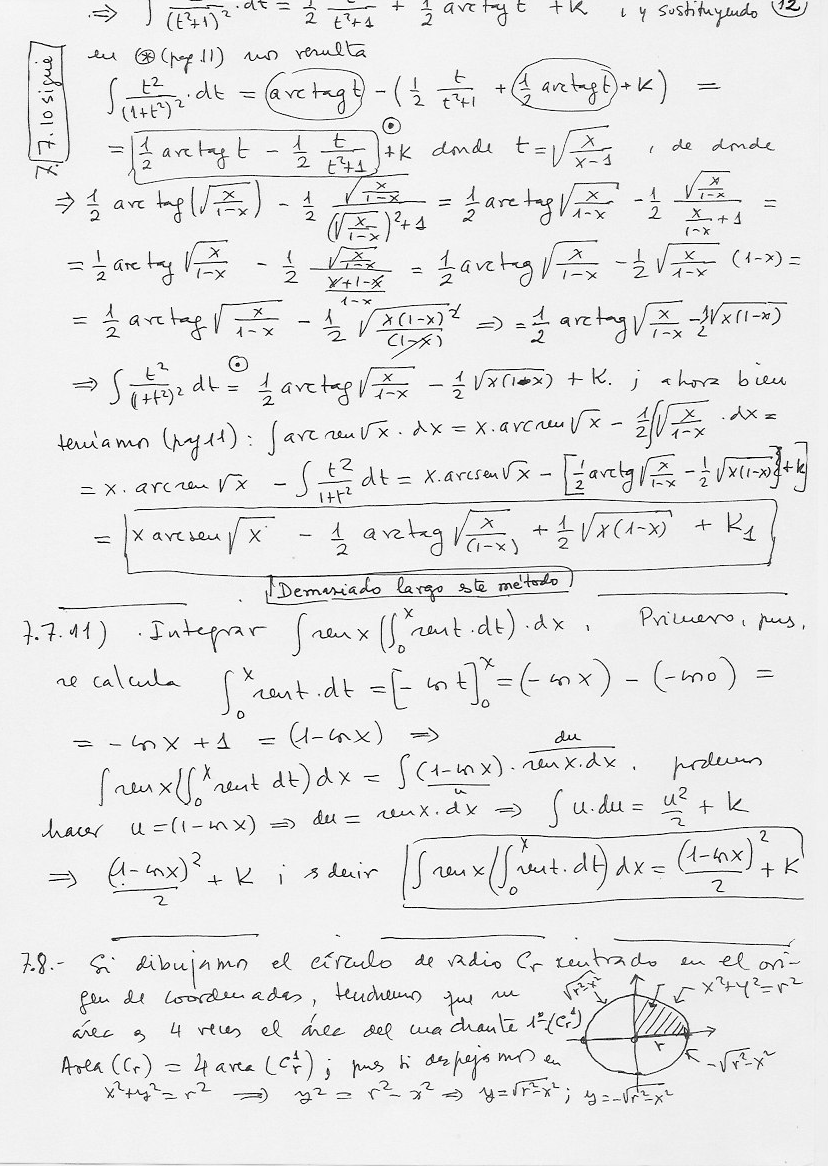 ⇒ ∫ t²/(t²+1)² · dt = 1/2 t/(t²+1) + 1/2 arctag t + K ; y sustituyendo (12)
7.7.10 sigue
en ⊛ (pag 11) nos resulta
∫ t²/(1+t²)² · dt = arctag t - (1/2 t/(t²+1) + 1/2 arctag t + K) =
= 1/2 arctag t - 1/2 t/(t²+1) + K donde t = √(x/(x-1)) , de donde
⇒ 1/2 arc tag(√(x/(1-x))) - 1/2 √(x/(1-x))/((√(x/(1-x)))²+1) = 1/2 arctag √(x/(1-x)) - 1/2 √(x/(1-x))/(x/(1-x)+1) =
= 1/2 arctag √(x/(1-x)) - 1/2 √(x/(1-x))/((x+1-x)/(1-x)) = 1/2 arctag √(x/(1-x)) - 1/2 √(x/(1-x)) (1-x) =
= 1/2 arctag √(x/(1-x)) - 1/2 √(x(1-x)²/(1-x)) ⇒ = 1/2 arctag √(x/(1-x)) - 1/2 √(x(1-x))
⇒ ∫ t²/(1+t²)² dt ⊙= 1/2 arctag √(x/(1-x)) - 1/2 √(x(1-x)) + K. ; ahora bien
teníamos (pag 11) : ∫ arcsen √x · dx = x · arcsen √x - 1/2 ∫ √(x/(1-x)) · dx =
= x · arcsen √x - ∫ t²/(1+t²) dt = x · arcsen √x - [1/2 arctg √(x/(1-x)) - 1/2 √(x(1-x)) + K]
= x arcsen √x - 1/2 arctag √(x/(1-x)) + 1/2 √(x(1-x)) + K₁
Demasiado largo este método
7.7.11) . Integrar ∫ sen x (∫₀ˣ sen t · dt) · dx . Primero, pues,
se calcula ∫₀ˣ sen t · dt = [- cos t]₀ˣ = (- cos x) - (- cos 0) =
= - cos x + 1 = (1 - cos x) ⇒
∫ sen x (∫₀ˣ sen t dt) dx = ∫ (1 - cos x) · sen x · dx . podemos
u du
hacer u = (1 - cos x) ⇒ du = sen x · dx ⇒ ∫ u · du = u²/2 + K
⇒ (1 - cos x)²/2 + K ; es decir ∫ sen x (∫₀ˣ sen t · dt) dx = (1 - cos x)²/2 + K
7.8.- Si dibujamos el círculo de radio Cr centrado en el ori-
gen de coordenadas, tendremos que su
área es 4 veces el área del cuadrante 1º (Cr¹)
Area (Cr) = 4 area (Cr¹) ; pues si despejamos en
x² + y² = r² ⇒ y² = r² - x² ⇒ y = √(r²-x²) ; y = -√(r²-x²)
√(r²-x²)
x² + y² = r²
r
-√(r²-x²)